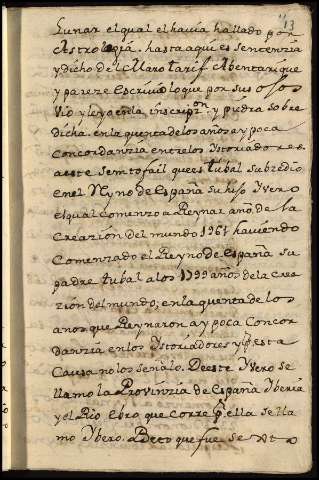 113
Lunar el qual el havia hallado por
Astrologia. hasta aqui es sentenzia
y dicho del Moro tarif Abentarique
y pareze Escrivio lo que por sus ojos
vio y leyo en la inscripon y piedra sobre
dicha. en la quenta de los años ay poca
Concordanzia entre los Ystoriadores.
a este Sem tofail que es tubal subzedio
en el Reyno de España su hijo Yvero
el qual Comenzo a Reynar año de la
Creazion del mundo 1961 haviendo
Comenzado el Reyno de España su
padre tubal a los 1799 años de la Crea
zion del mundo; en la quenta de los
años que Reynaron ay poca Concor
danzia en los Ystoriadores y pr esta
Causa no lo señalo. De este Yvero se
llamo la Provinzia de España Yberia
y el Rio Ebro que Corre pr ella se lla
mo Ybero. que fue se